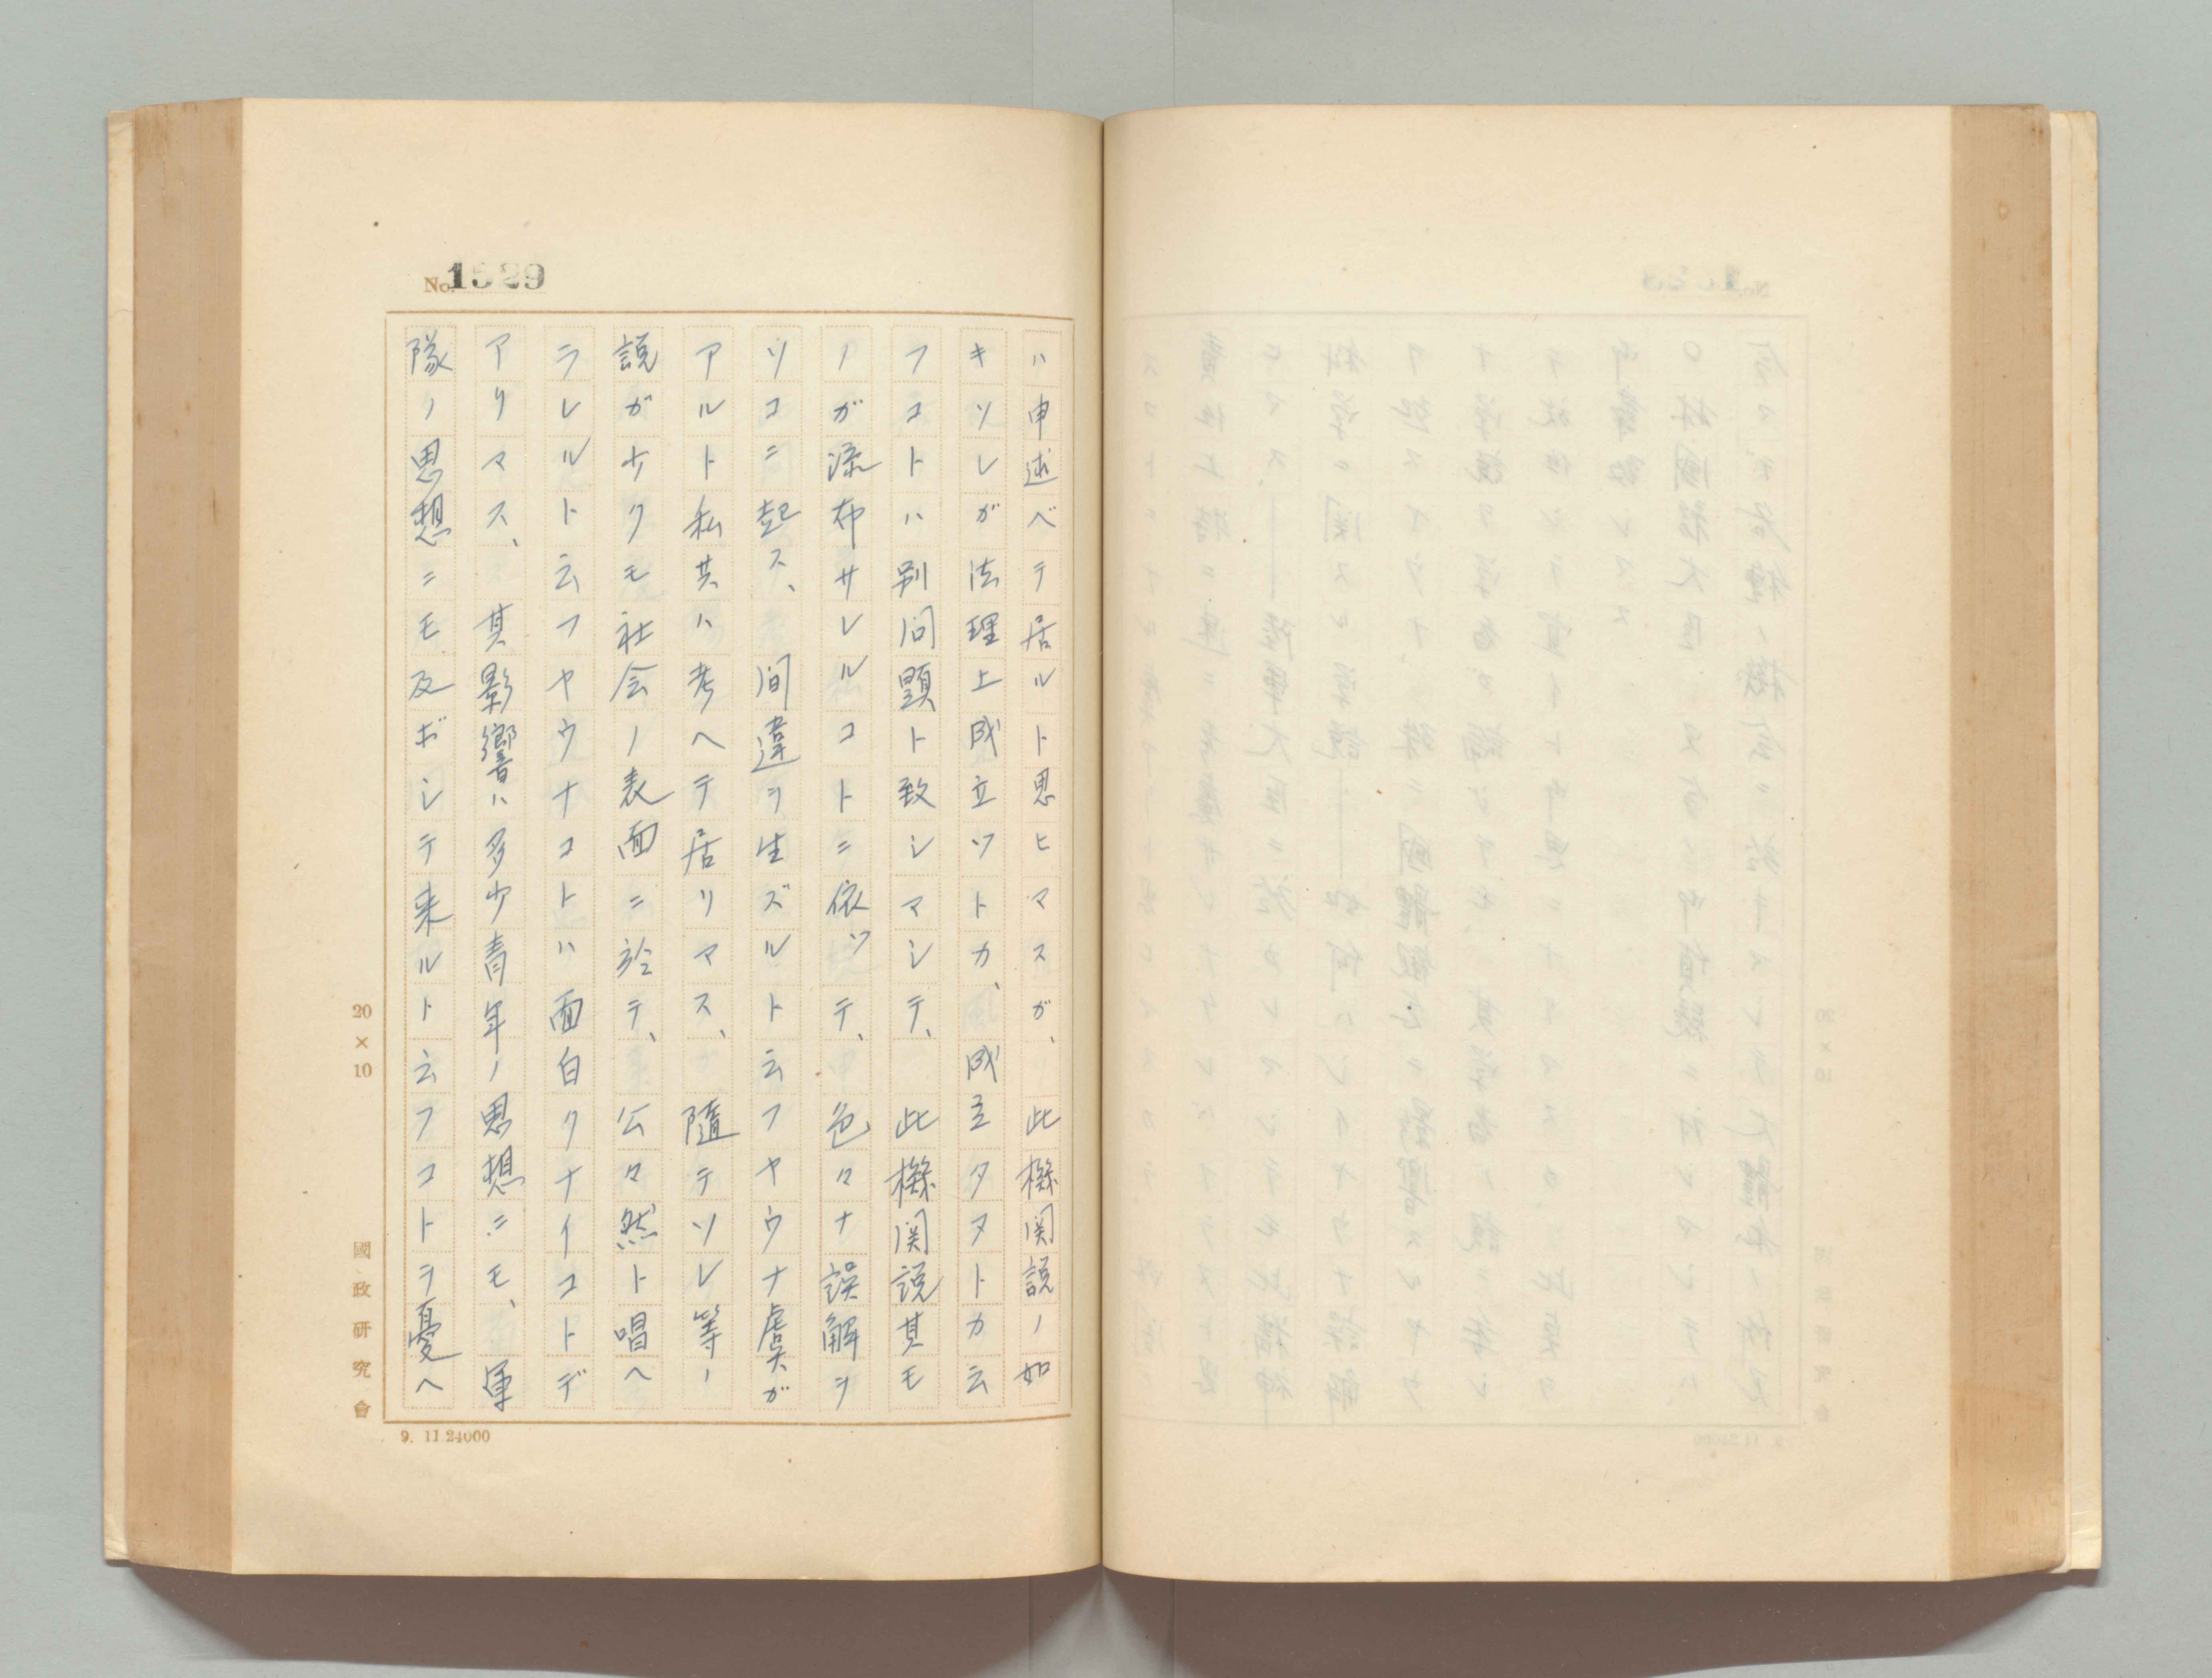 No. 1529
ハ申述ベテ居ルト思ヒマスガ、此機関説ノ如
キソレガ法理上成立ツトカ、成立タヌトカ云
フコトハ別問題ト致シマシテ、此機関説其モ
ノガ流布サレルコトニ依ツテ、色々ナ誤解ヲ
ソコニ起ス、間違ヲ生ズルト云フヤウナ虞ガ
アルト私共ハ考ヘテ居リマス、随テソレ等ノ
説ガ少クモ社会ノ表面ニ於テ、公々然ト唱ヘ
ラレルト云フヤウナコトハ面白クナイコトデ
アリマス、其影響ハ多少青年ノ思想ニモ、軍
隊ノ思想ニモ及ボシテ来ルト云フコトヲ憂ヘ
20×10
國政研究會
9. 11.24000